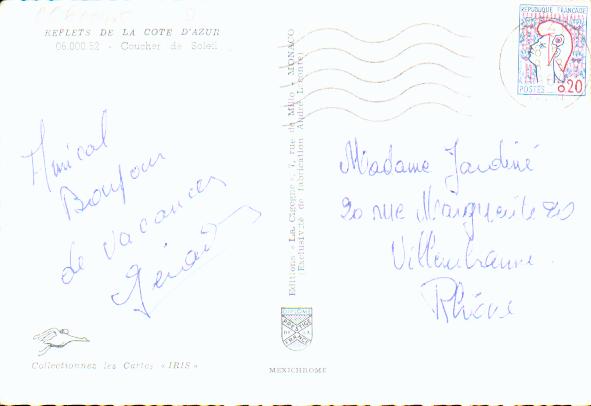 REFLETS DE LA COTE D'AZUR
06.000.52 - Coucher de Soleil
Amical
Bonjour
de vacances
Gérard
Collectionnez les Cartes « IRIS »
Editions « La Cigogne », 1, rue de Millo - MONACO
(Exclusivité de fabrication André Leconte)
PRESTIGE
DE
FRANCE
MEXICHROME
REPUBLIQUE FRANÇAISE
POSTES
0,20
Madame Jardiné
20 rue Marguerite
Villeurbanne.
Rhône